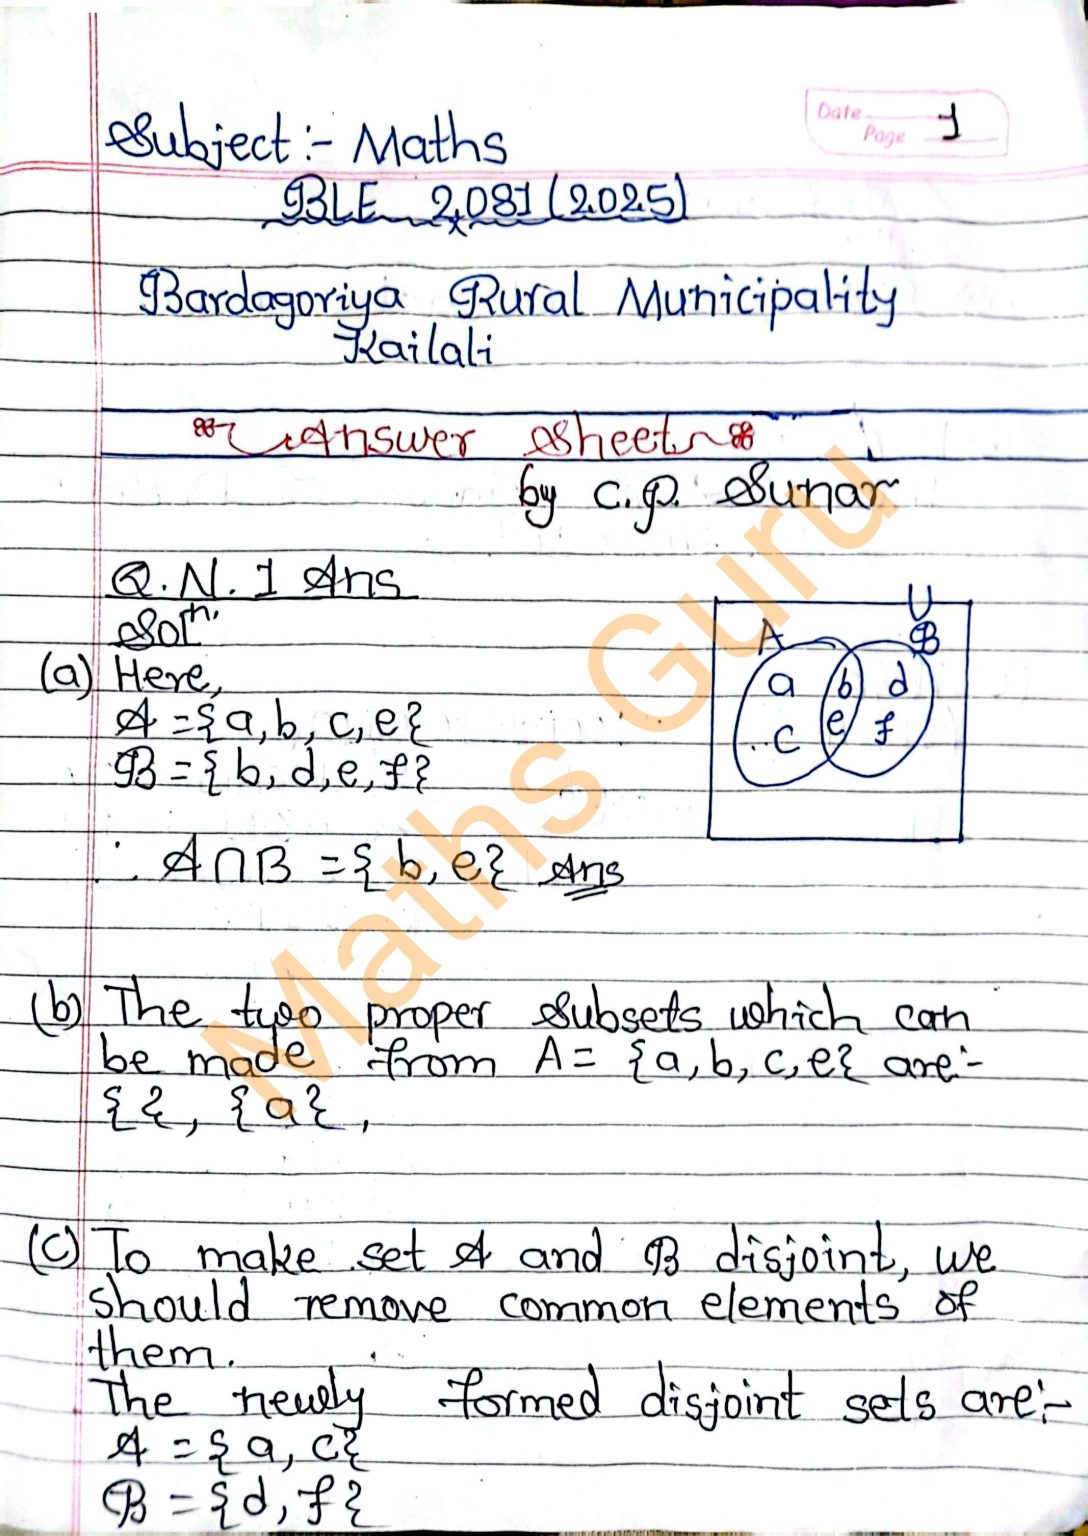 Date
Page 1
Subject :- Maths
BLE 2081 (2025)
Bardagoriya Rural Municipality
Kailali
Answer Sheet
by C.P. Sunar
Q.N. 1 Ans
Solⁿ.
(a) Here,
A = {a, b, c, e}
B = {b, d, e, f}
∴ A∩B = {b, e} Ans
U
A B
a b d
c e f
(b) The two proper subsets which can
be made from A = {a, b, c, e} are:-
{ }, {a},
(c) To make set A and B disjoint, we
should remove common elements of
them.
The newly formed disjoint sets are:-
A = {a, c}
B = {d, f}
Maths Guru